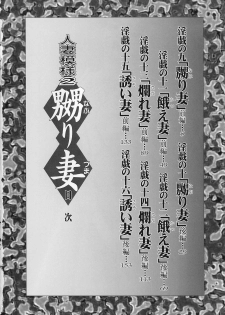 人妻模様2
嬲り妻
なぶ
つま
目次
淫戯の九「嬲り妻」前編…
淫戯の十「嬲り妻」後編…
淫戯の十一「餓え妻」前編…
淫戯の十二「餓え妻」後編…
淫戯の十三「爛れ妻」前編…
淫戯の十四「爛れ妻」後編…
淫戯の十五「誘い妻」前編…
淫戯の十六「誘い妻」後編…